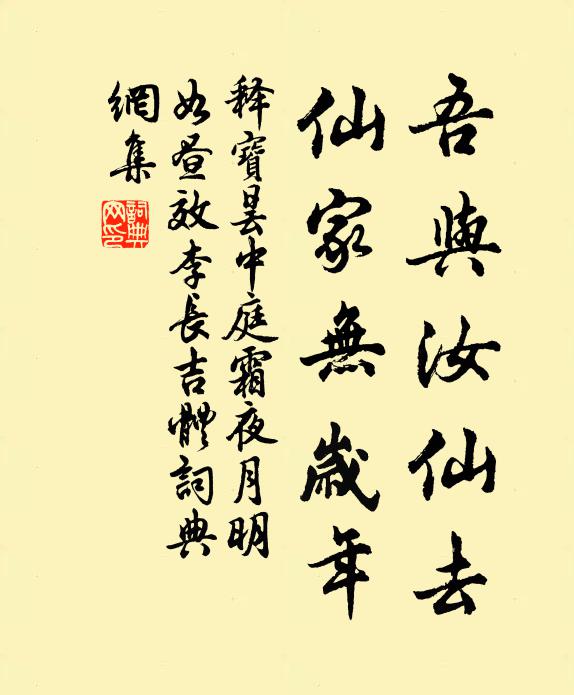 吾與汝仙去
仙家無歲年
釋寶曇中庭霜夜月明
如晝效李長吉體詞典
網集
詞典
网印